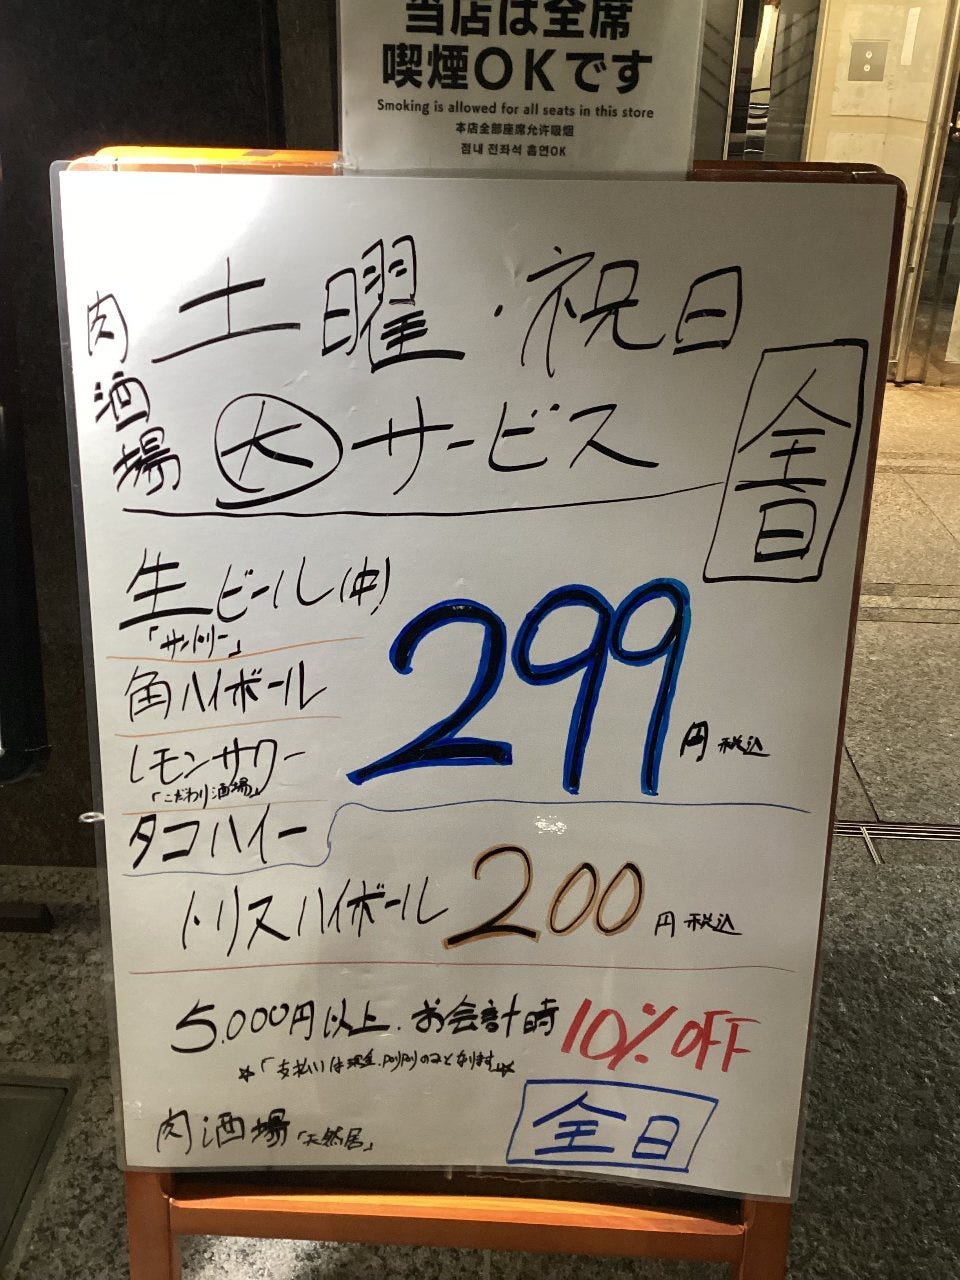 当店は全席
喫煙OKです
Smoking is allowed for all seats in this store
本店全部座席允许吸烟
점내 전좌석 흡연OK
肉酒場
土曜・祝日
大サービス
全日
生ビール(中)
「サントリー」
角ハイボール
レモンサワー
「こだわり酒場」
タコハイー
299円税込
トリスハイボール 200円税込
5.000円以上.お会計時 10%OFF
☆「支払いは現金.PayPayのみとなります」☆
肉酒場「天然居」
全日